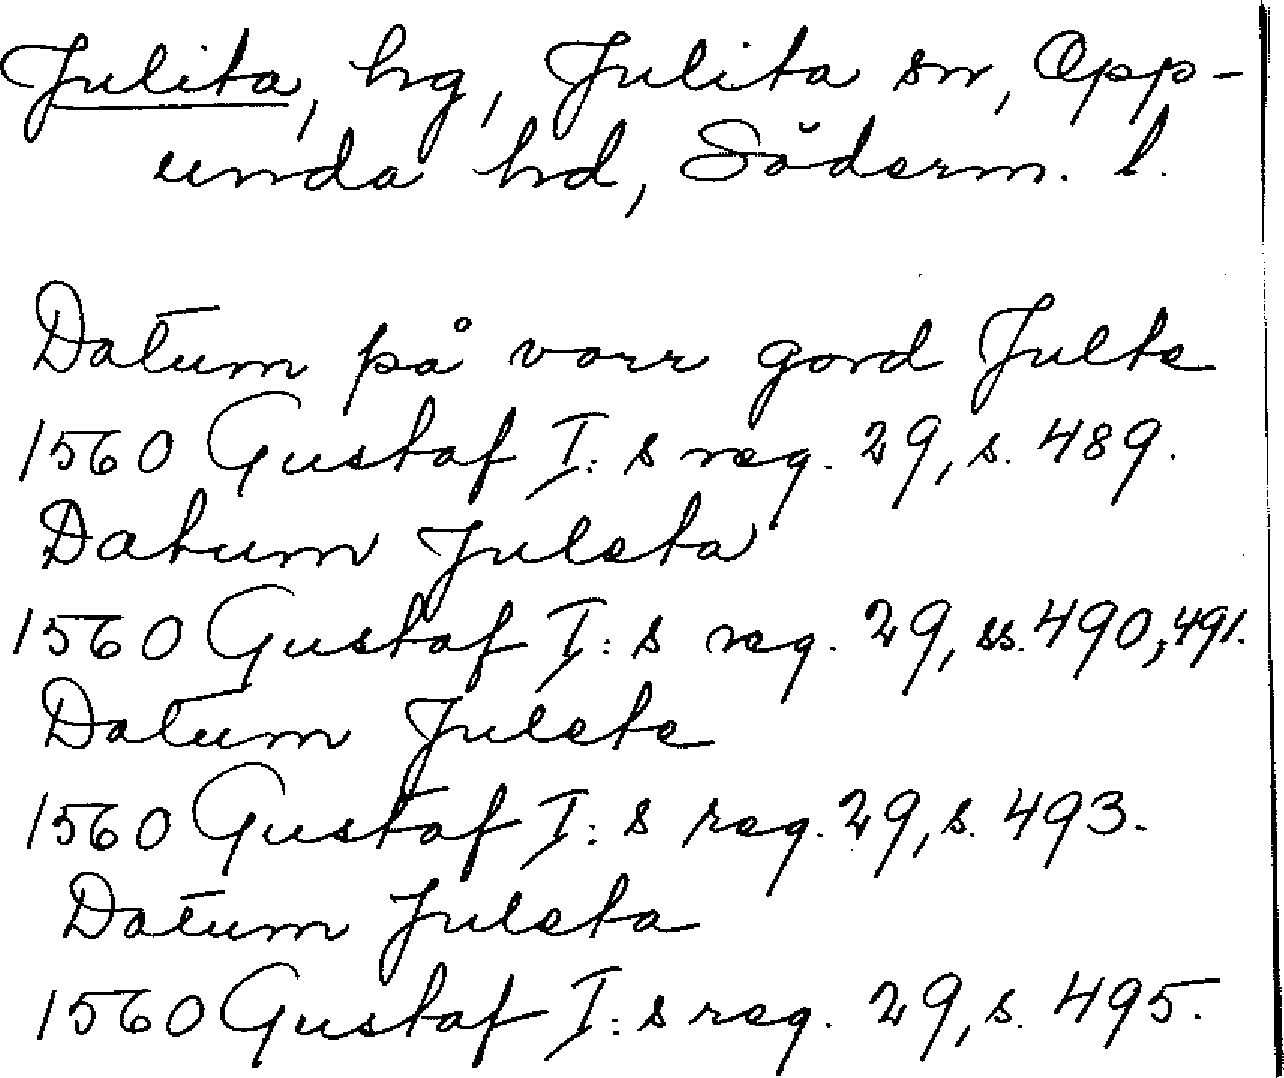 Julita, hg, Julita sn, Opp-
unda hd, Söderm. l.
Datum på vorr gord Julte
1560 Gustaf I:s reg. 29, s. 489.
Datum Juleta
1560 Gustaf I:s reg. 29, ss. 490, 491.
Datum Julete
1560 Gustaf I:s reg. 29, s. 493.
Datum Juleta
1560 Gustaf I:s reg. 29, s. 495.